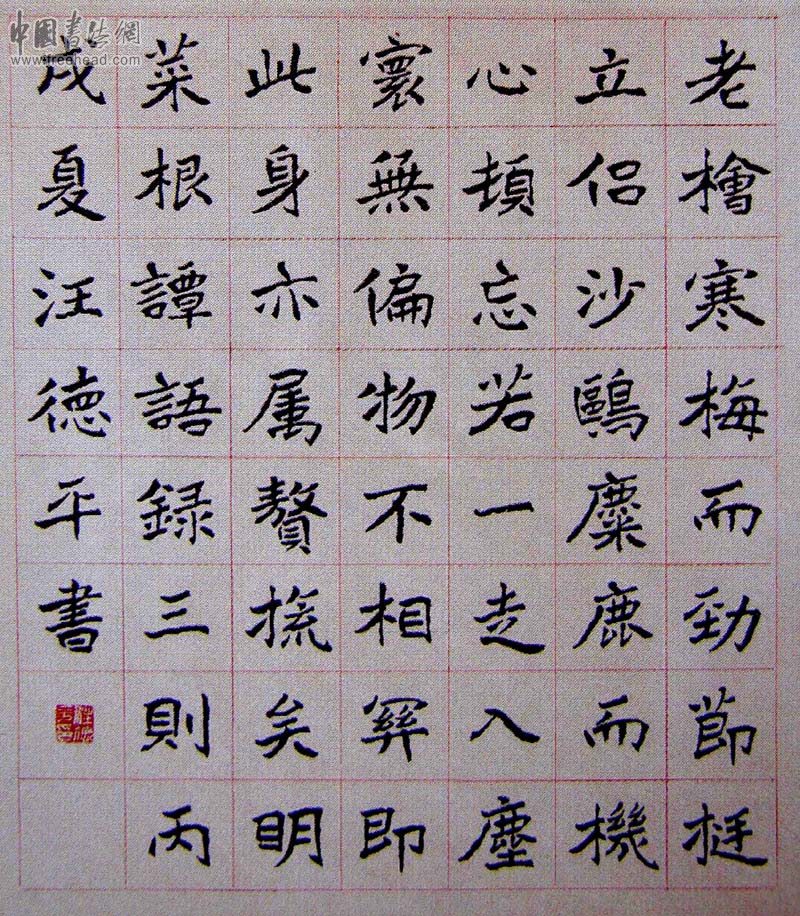 老檜寒梅而勁節挺
立侣沙鷗麋鹿而機
心頓忘若一走入塵
寰無偏物不相即
此身亦属贅旒矣明
菜根譚語録三則丙
戌夏汪德平書
中國書法網
www.freehead.com